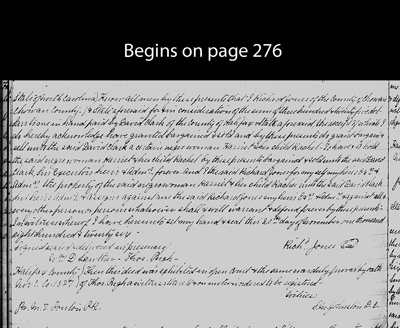 Begins on page 276
State of North Carolina Know all men by these presents that I Richard Jones of the County of Chowan
County & State aforesaid for & in consideration of the sum of three hundred & twenty five dol-
lars to me in hand paid by David Clark of the County of Halifax & State aforesaid, the receipt of which I
do hereby acknowledge have granted bargained & sold and by these presents do grant bargain &
sell unto the said David Clark a certain negro woman Harriet & her child Rachel To have & to hold
the said negro woman Harriet & her child Rachel by these presents bargained & sold unto the said David
Clark his Executors heirs & Adms. forever and I the said Richard Jones for myself my heirs Exrs. &
Adms. the property of the said negro woman Harriet & her child Rachel unto the said David Clark
his heirs Adms. & assigns against me the said Richard Jones my heirs Exrs. & Adms. & against all &
every other person or persons whatsoever shall & will warrant & defend forever by these presents
In witness whereof I have hereunto set my hand & seal this 21st day of November one thousand
eight hundred & twenty six
Signed sealed & delivered in presence of Richd. Jones Seal
Wm. D. Thos. Pugh
Halifax County Then this deed was exhibited in open Court & the same was duly proved by oath
Ct. 1827 of Thos. Pugh a witness thereto & on motion ordered to be registered
Witness
Pr. M. T. P.R.